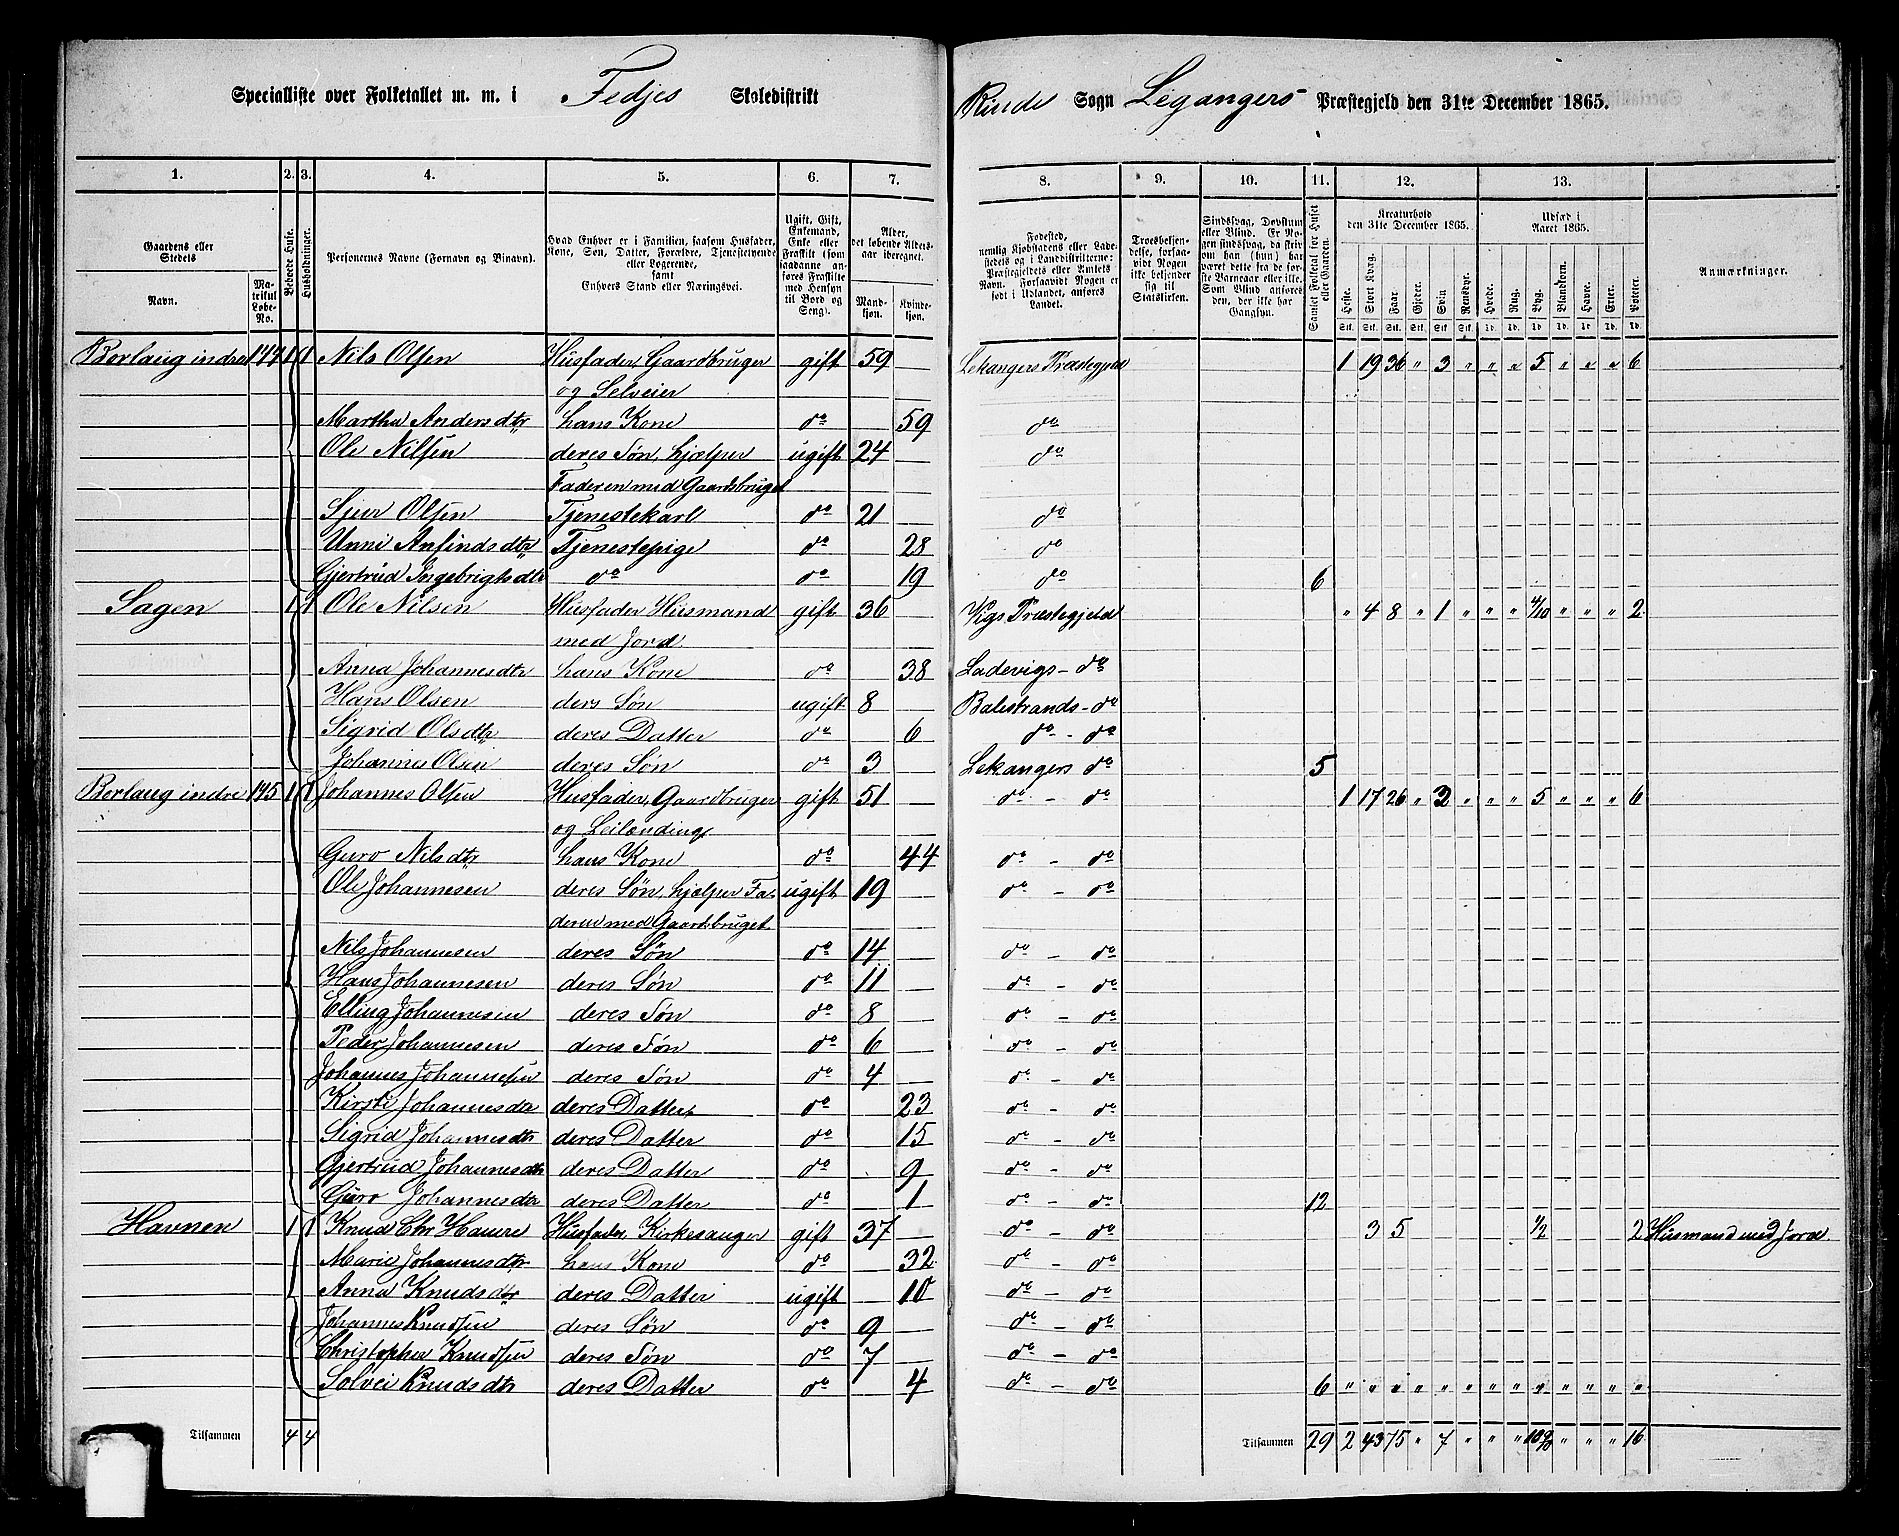 Specialliste over Folketallet m. m. i Fedjes Skoledistrikt Rinde Sogn Leganger Præstegjeld den 31te December 1865.
1. 2. 3. 4. 5. 6. 7. 8. 9. 10. 11. 12. 13.
Gaardens eller Stedets Navn. Matrikul Løbe-No. Beboede Huse. Husholdninger. Personernes Navne (Fornavn og Binavn). Hvad Enhver er i Familien, saasom Husfader, Kone, Søn, Datter, Forældre, Tjenestetyende eller Logerende, samt Enhvers Stand eller Næringsvei. Ugift, Gift, Enkemand, Enke eller Fraskilt (som saadanne anføres Fraskilte med Hensyn til Bord og Seng). Alder, det løbende Alders-aar iberegnet. Mandkjøn. Kvindekjøn.
Fødested, nemlig Kjøbstadens eller Ladestedets og i Landdistrikterne: Præstegjeldets eller Amtets Navn. Forsaavidt Nogen er født i Udlandet, anføres Landet. Troesbekjendelse, forsaavidt Nogen ikke bekjender sig til Statskirken. Sindssvag, Døvstum eller Blind. Er Nogen sindssvag, da skriv om han (hun) har været dette fra de første Barneaar eller ikke. Som Blind anføres den, der ikke har Gangsyn. Samlet Folketal for Huset eller Gaarden. Kreaturhold den 31te December 1865. Heste. Stort Kvæg. Faar. Gjeder. Svin. Rensdyr. Udsæd i Aaret 1865. Hvede. Rug. Byg. Blandkorn. Havre. Erter. Poteter. Anmærkninger.
Borlaug indre 144 1 1 Nils Olsen Husfader, Gaardbruger gift 59 Lekangers Præstegjeld 1 19 36 " 3 " " " 5 " " " 6
og Selveier
Martha Andersdtr hans Kone do 59 do
Ole Nilsen deres Søn, hjælper ugift 24 do
Faderen med Gaardsbruget
Sjur Olsen Tjenestekarl do 21 do
Unni Anfindsdtr Tjenestepige do 28 do
Gjertrud Ingebrigtsdtr do do 19 do 6
Sagen 1 1 Ole Nilsen Husfader Husmand gift 36 Vigs Præstegjeld " 4 8 " 1 " " " 4/10 " " " 2
med Jord
Anna Johannesdtr hans Kone do 38 Ladevigs - do
Hans Olsen ders Søn ugift 8 Balestrands - do
Sigrid Olsdtr deres Datter do 6 do - do
Johannes Olsen deres Søn do 3 Lekangers do 5
Borlaug indre 145 1 1 Johannes Olsen Husfader, Gaardbruger gift 51 do - do 1 17 26 " 3 " " " 5 " " " 6
og Leilænding
Guro Nilsdtr hans Kone do 44 do - do
Ole Johannesen deres Søn, hjelper Fa- ugift 19 do - do
deren med Gaardsbruget
Nils Johannesen deres Søn do 14 do - do
Hans Johannesen deres Søn do 11 do - do
Elling Johannesen deres Søn do 8 do - do
Peder Johannesen deres Søn do 6 do - do
Johannes Johannesen deres Søn do 4 do - do
Kirsti Johannesdtr deres Datter do 23 do - do
Sigrid Johannesdtr deres Datter do 15 do - do
Gjertrud Johannesdtr deres Datter do 9 do - do
Guro Johannesdtr deres Datter do 1 do - do 12
Havnen 1 1 Knud Chr Haure Husfader, Kirkesanger gift 37 do - do 3 5 1/2 2 Husmand med Jord
Marie Johannesdtr hans Kone do 32 do - do
Anna Knudsdtr deres Datter ugift 10 do - do
Johannes Knudsen deres Søn do 9 do - do
Christopher Knudsen deres Søn do 7 do - do
Solvei Knudsdtr deres Datter do 4 do - do 6 " " " " " " " " " " " " "
Tilsammen 4 4 Tilsammen 29 2 43 75 " 7 " " " 10 9/10 " " " 16